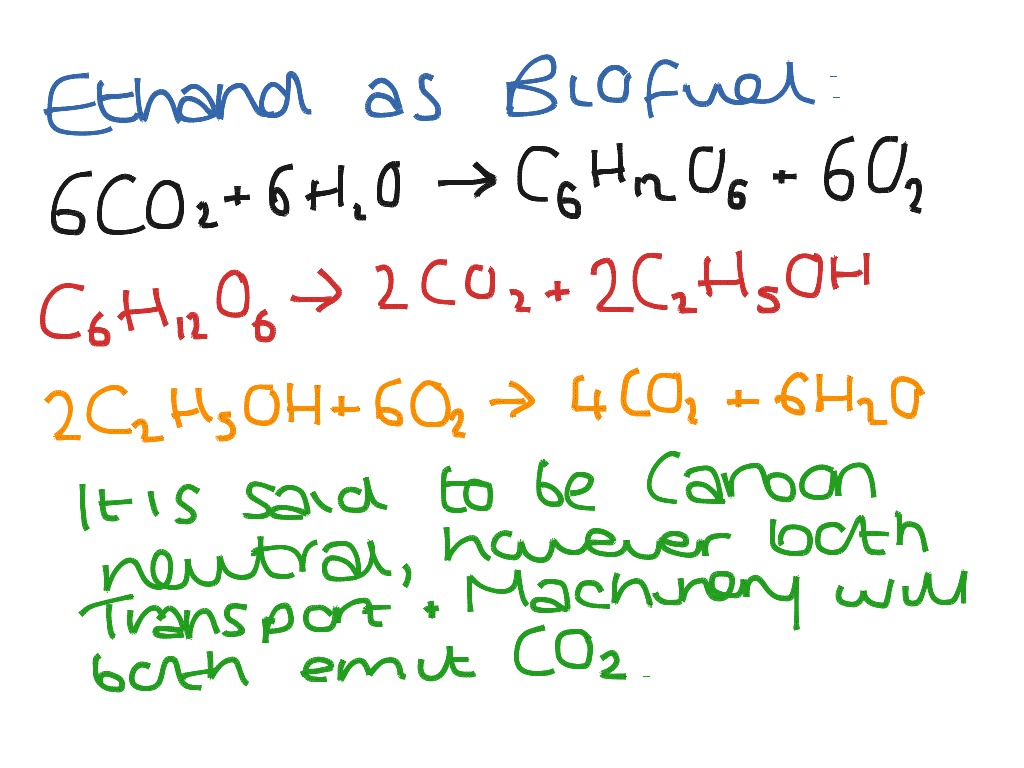 Ethanol as Biofuel:
6CO₂ + 6H₂O → C₆H₁₂O₆ + 6O₂
C₆H₁₂O₆ → 2CO₂ + 2C₂H₅OH
2C₂H₅OH + 6O₂ → 4CO₂ + 6H₂O
It is said to be Carbon
neutral, however both
Transport + Machinery will
both emit CO₂.